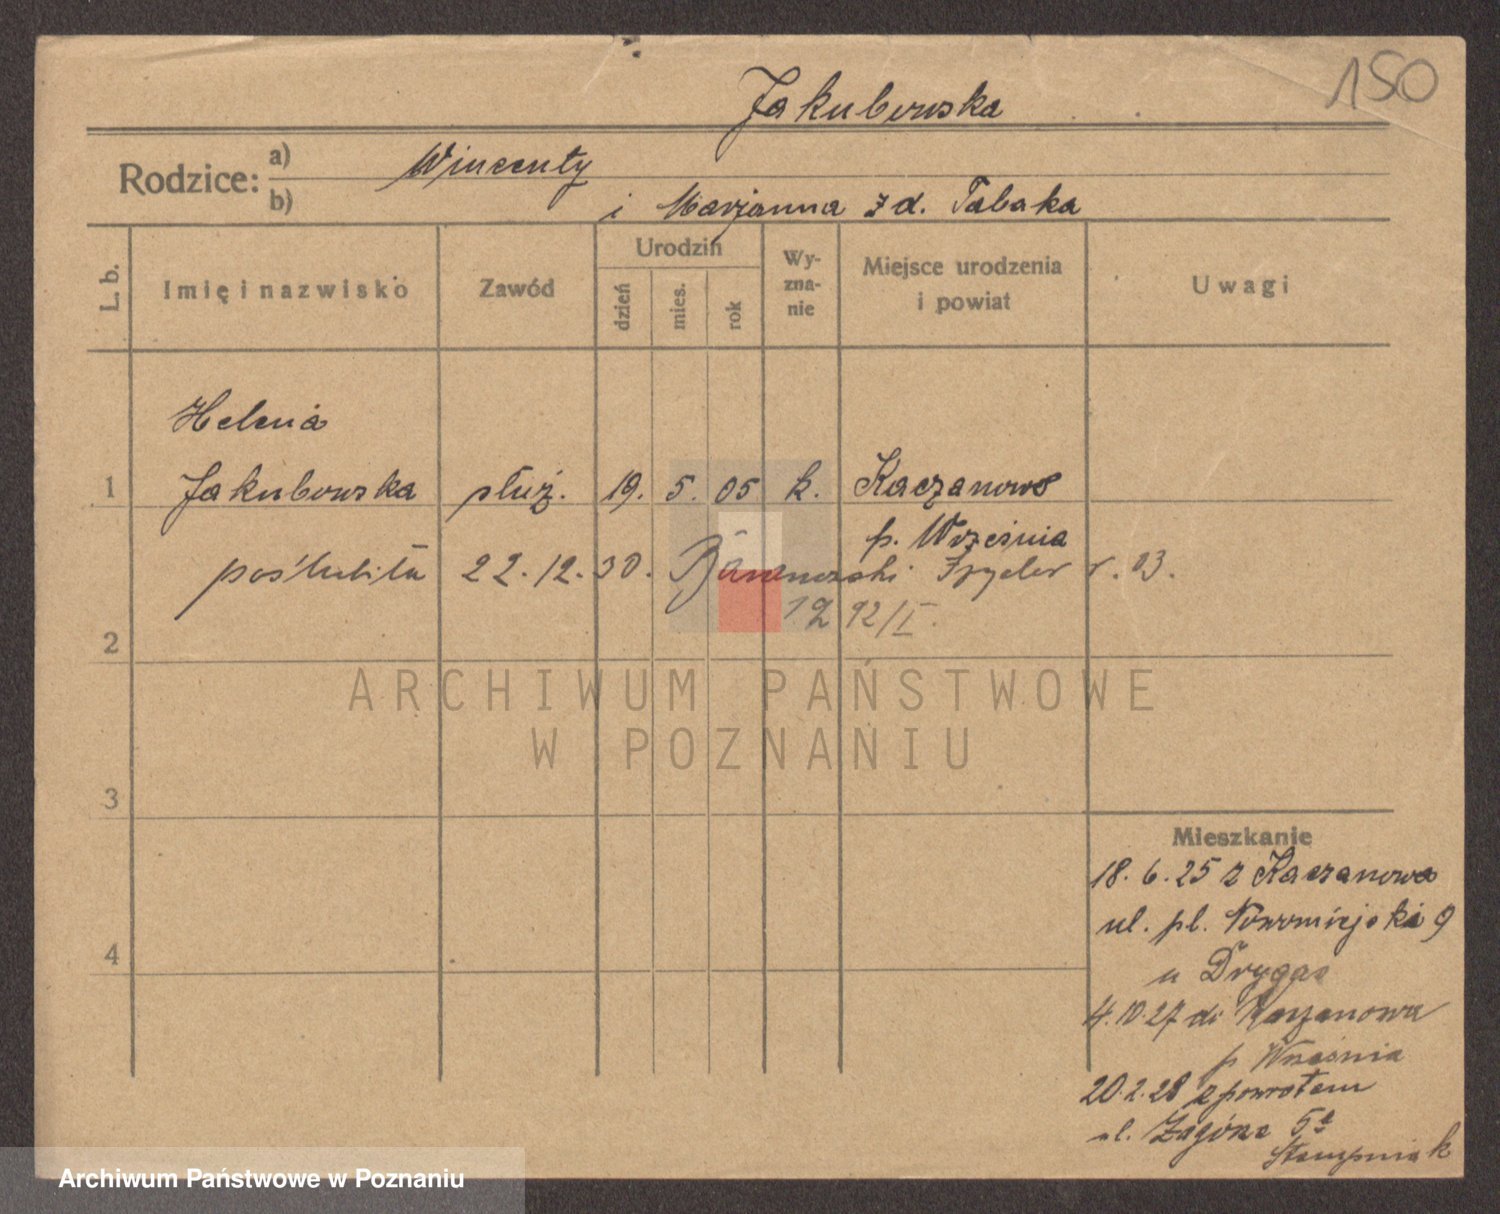 150
Jakubowska
Rodzice: a) Wincenty
b) i Marjanna z d. Tabaka
L. b.
Imię i nazwisko
Zawód
Urodzin
dzień
mies.
rok
Wy-
zna-
nie
Miejsce urodzenia
i powiat
Uwagi
Helena
1 Jakubowska służ. 19. 5. 05 k. Kaczanowo
p. Września
poślubiła 22.12.30. r. 03.
2
3
4
Mieszkanie
18.6.25 z Kaczanowa
ul. pl. Nowomiejski 9
u Drygas
4.10.27 do Kaczanowa
p Września
20.2.28 z powrotem
ul. Zagórze 5a
Stempniak
ARCHIWUM PAŃSTWOWE
W POZNANIU
Archiwum Państwowe w Poznaniu